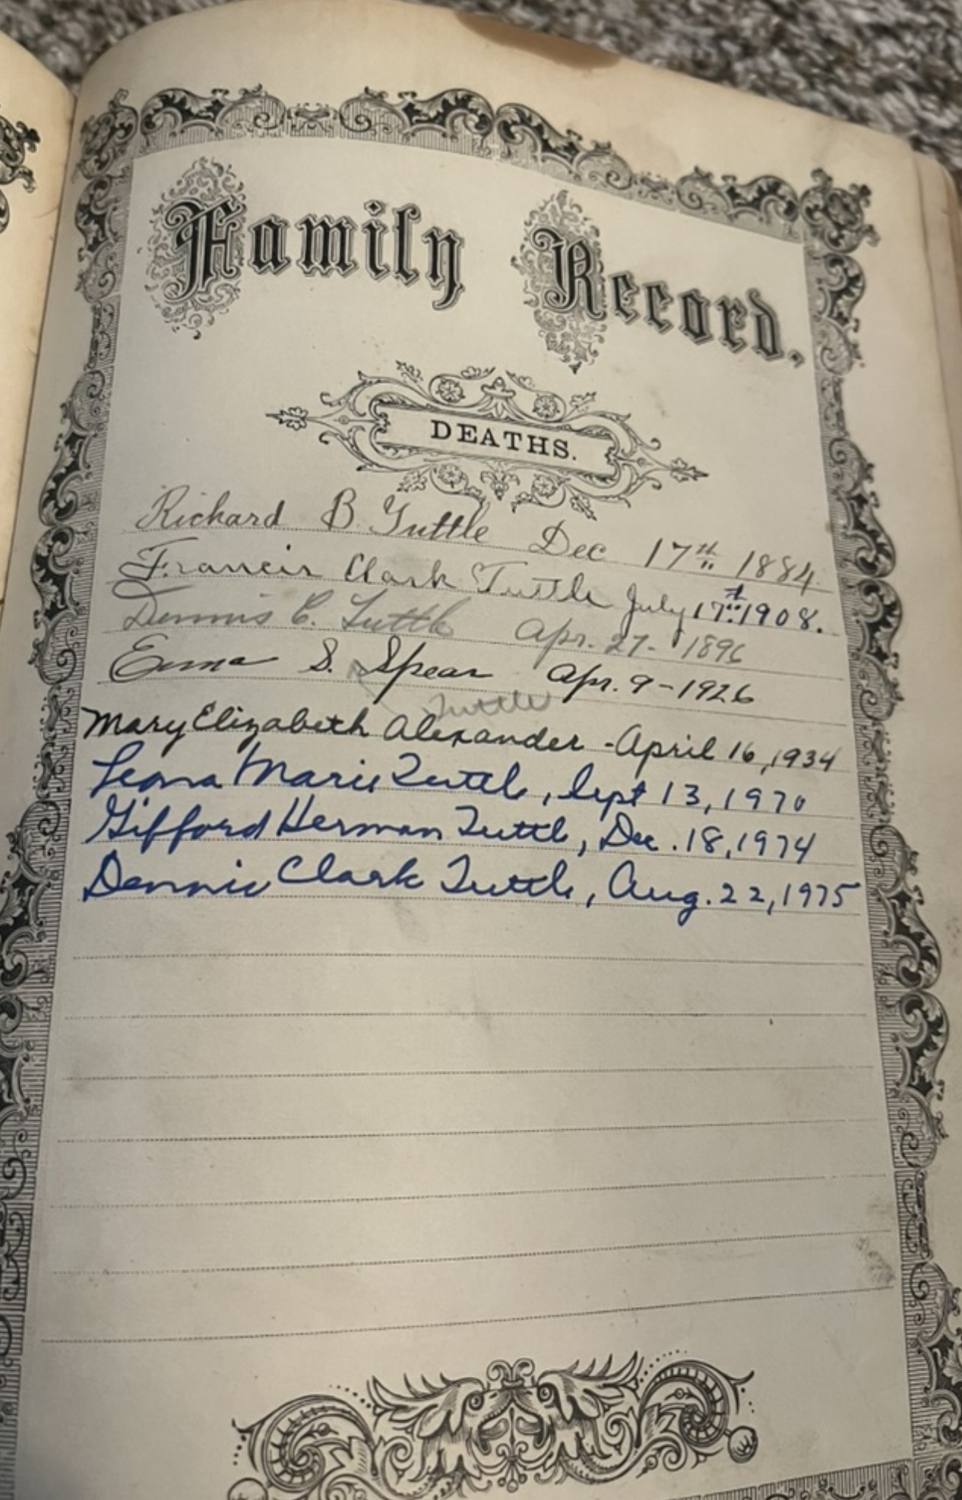 Family Record.
DEATHS.
Richard B. Tuttle Dec 17th 1884.
Francis Clark Tuttle July 17th 1908.
Dennis C. Tuttle Apr. 27 - 1896
Emma S. Spear Apr. 9 - 1926
Tuttle
Mary Elizabeth Alexander - April 16, 1934
Leona Marie Tuttle, Sept 13, 1970
Gifford Herman Tuttle, Dec. 18, 1974
Dennis Clark Tuttle, Aug. 22, 1975